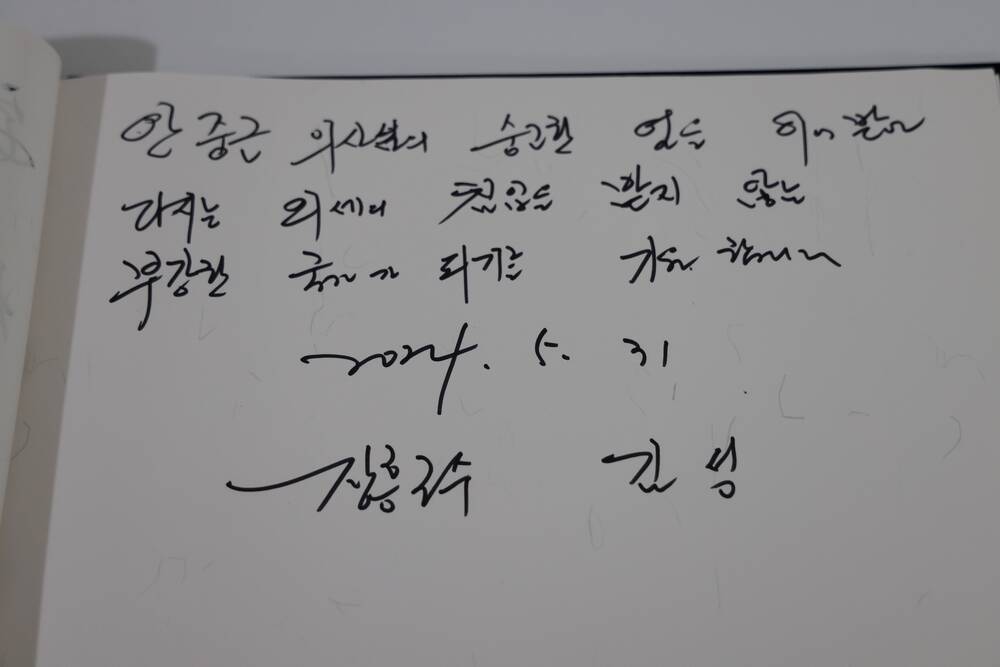 안중근 의사님의 숭고한 얼을 이어받아
다시는 외세의 침입을 받지 않는
부강한 국가가 되기를 기원합니다
2024. 5. 31
장흥군수 김성